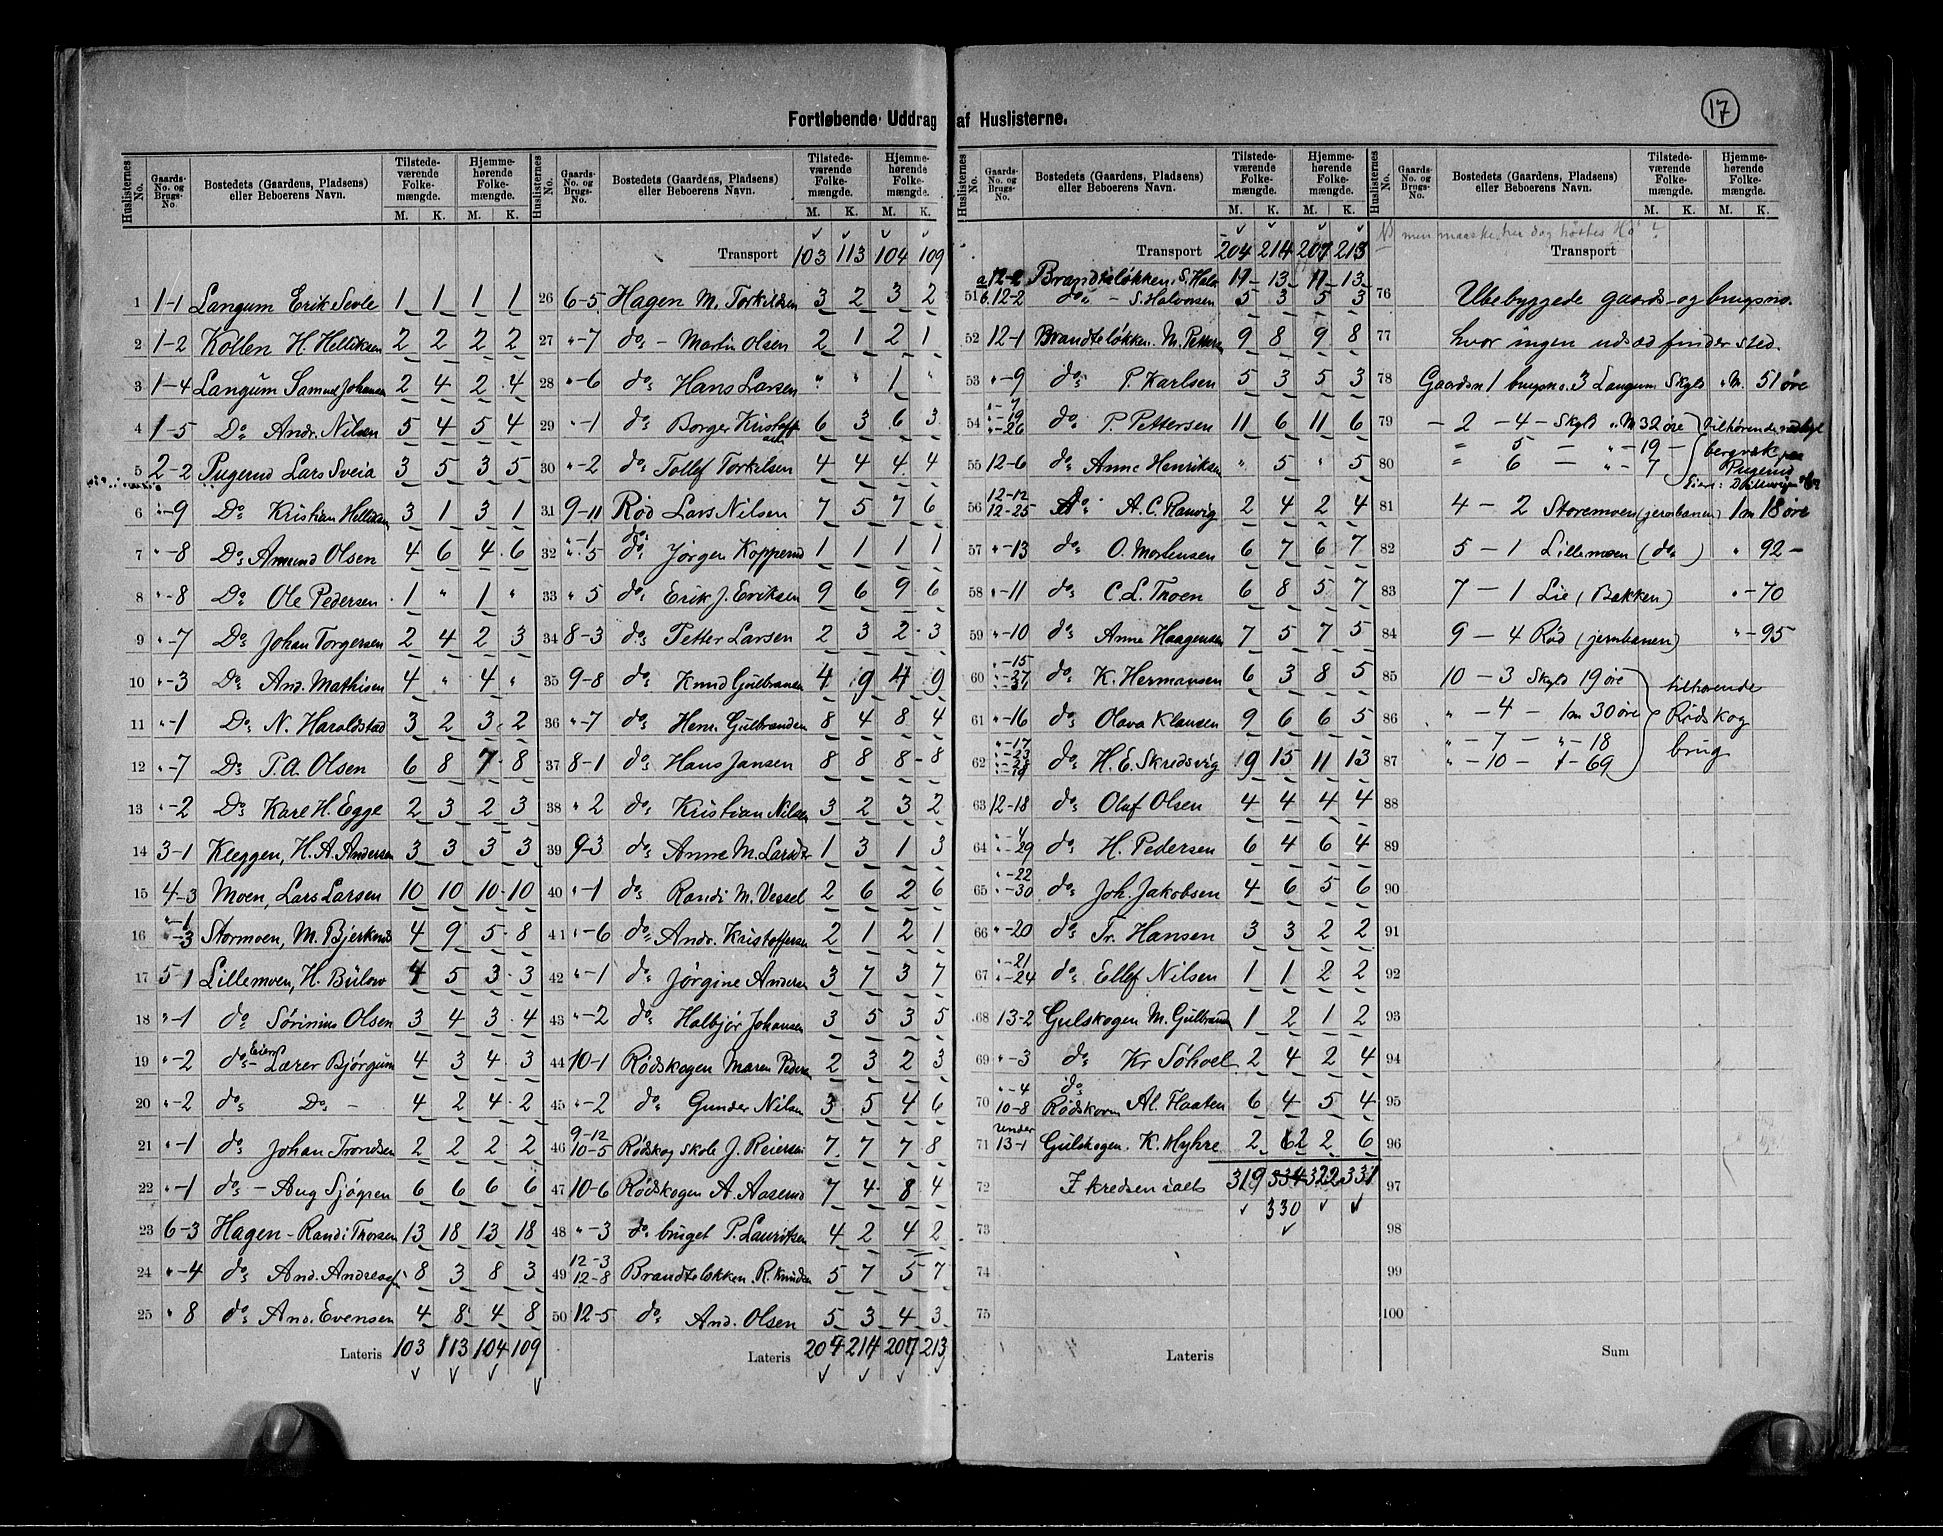 17
Fortløbende Uddrag af Huslisterne.
Huslisternes No. Gaards-No. og Brugs-No. Bostedets (Gaardens, Pladsens) eller Beboerens Navn. Tilstedeværende Folkemængde. M. K. Hjemmehørende Folkemængde. M. K.
1 1-1 Langum Erik Sevle 1 1 1 1
2 1-2 Kollen H. Helliksen 2 2 2 2
3 1-4 Langum Samuel Johansen 2 4 2 4
4 1-5 Do Andr. Nilsen 5 4 5 4
5 2-2 Pugerud Lars Sveia 3 5 3 5
6 "-9 Do Kristian Helliksen 3 1 3 1
7 "-8 Do Amund Olsen 4 6 4 6
8 "-8 Do Ole Pedersen 1 " 1 "
9 "-7 Do Johan Torgersen 2 4 2 3
10 "-3 Do And. Mathisen 4 " 4 "
11 "-1 Do N. Haraldstad 3 2 3 2
12 "-7 Do P.A. Olsen 6 8 7 8
13 "-2 Do Karl H. Egge 2 3 2 3
14 3-1 Kleggen, H.A. Andersen 3 3 3 3
15 4-3 Moen, Lars Larsen 10 10 10 10
16 "-1 "-3 Stormoen, M. Bjerknes 4 9 5 8
17 5-1 Lillemoen, H. Bülow 4 5 3 3
18 "-1 do Sørinius Olsen 3 4 3 4
19 "-2 do Eier Lærer Bjørgum 4 3 4 3
20 "-2 do Do - 4 2 4 2
21 "-1 do Johan Trondsen 2 2 2 2
22 "-1 do - Aug Sjøgren 6 6 6 6
23 6-3 Hagen - Randi Thorsen 13 18 13 18
24 "-4 do And. Andreas 8 3 8 3
25 " 8 do And. Evensen 4 8 4 8
Lateris 103 113 104 109
Huslisternes No. Gaards-No. og Brugs-No. Bostedets (Gaardens, Pladsens) eller Beboerens Navn. Tilstedeværende Folkemængde. M. K. Hjemmehørende Folkemængde. M. K.
Transport 103 113 104 109
26 6-5 Hagen M. Torkildsen 3 2 3 2
27 "-7 do - Martin Olsen 2 1 2 1
28 "-6 do Hans Larsen " " 1 "
29 "-1 do Borger Kristoff 6 3 6 3
30 "-2 do Tollef Torkilsen 4 4 4 4
31 9-11 Rød Lars Nilsen 7 5 7 6
32 "-1 "-5 do Jørgen Kopperud 1 1 1 1
33 " 5 do Erik J. Eriksen 9 6 9 6
34 8-3 do Petter Larsen 2 3 2 3
35 9-8 do Knud Gulbransen 4 9 4 9
36 "-7 do Henr. Gulbrandsen 8 4 8 4
37 8-1 do Hans Jansen 8 8 8 8
38 " 2 do Kristian Nilsen 3 2 3 2
39 9-3 do Anne M. Larsdtr 1 3 1 3
40 "-1 do Randi M. Vessel 2 6 2 6
41 "-6 do Andr. Kristoffersen 2 1 2 1
42 "-1 do Jørgine Anders 3 7 3 7
43 "-2 do Halbjør Johansen 3 5 3 5
44 10-1 Rødskogen Maren Peders 2 3 2 3
45 "-2 do Gunder Nilsen 3 5 4 6
46 9-12 10-5 Rødskog skole J. Reiersen 7 7 7 8
47 10-6 Rødskogen A. Aaserud 7 4 8 4
48 "-3 do bruget P. Lauritsen 4 2 4 2
49 12-3 12-8 Brandteløkken R. Knudsen 5 7 5 7
50 12-5 do And. Olsen 5 3 4 3
Lateris 204 214 207 213
Huslisternes No. Gaards-No. og Brugs-No. Bostedets (Gaardens, Pladsens) eller Beboerens Navn. Tilstedeværende Folkemængde. M. K. Hjemmehørende Folkemængde. M. K.
Transport 204 214 207 213
a 12-2 Brandteløkken S. Halv 17 13 17 13
51 b. 12-2 do - S. Halvorsen 5 3 5 3
52 12-1 Brandteløkken. M. Petters 9 8 9 8
53 "-9 do P. Karlsen 5 3 5 3
54 "-7 "-19 "-26 do P. Pettersen 11 6 11 6
55 12-6 do Anne Henriksen " 5 " 5
56 12-12 12-25 do A. C. Ranvig 2 4 2 4
57 "-13 do O. Mortensen 6 7 6 7
58 "-11 do C. L. Thoen 6 8 5 7
59 "-10 do Anne Haagensen 7 5 7 5
60 "-15 "-27 "-31 do K. Hermansen 6 3 8 5
61 "-16 do Olava Klausen 9 6 6 5
62 "-17 "-23 "-28 "-19 do H. E. Skredsvig 19 15 11 13
63 12-18 do Olaf Olsen 4 4 4 4
64 "-4 "-29 do H. Pedersen 6 4 6 4
65 "-22 "-30 do Joh. Jakobsen 4 6 5 6
66 "-20 do Tr. Hansen 3 3 2 2
67 "-21 "-24 do Ellef Nilsen 1 1 2 2
68 13-2 Gulskogen M. Gulbrands 1 2 1 2
69 "-3 do Kr Søhoel 2 4 2 4
70 "-4 10-8 do Rødskoven Al. Flaaten 6 4 5 4
71 under 13-1 Gulskogen. K. Myhre 2 6 2 2 6
72 I kredsen ialt 319 334 322 331
73 330
74
75
Lateris
Huslisternes No. Gaards-No. og Brugs-No. Bostedets (Gaardens, Pladsens) eller Beboerens Navn. Tilstedeværende Folkemængde. M. K. Hjemmehørende Folkemængde. M. K.
men maaske her dog høstes Hø?
Transport
76 Ubebyggede gaards- og brugsno.
77 hvor ingen udsæd finder sted.
78 Gaardsn 1 brugsno. 3 Langum Skyld " M. 51 øre
79 - 2 - 4 - Skyld " M 32 øre tilhørende
80 " 5 - " - 19 - bergværk paa
" 6 - " - 7 Pugerud
81 4 - 2 Storemoen (jernbanen) 1 m 18 øre
82 5 - 1 Lillemoen (do) " 92 -
83 7 - 1 Lie (Bakken) " - 70
84 9 - 4 Rød (jernbanen) " - 95
85 10 - 3 Skyld 19 øre tilhørende
86 " - 4 - 1 m 30 øre Rødskog
" - 7 - " - 18 brug
87 " - 10 - 1 - 69
88
89
90
91
92
93
94
95
96
97
98
99
100
Sum